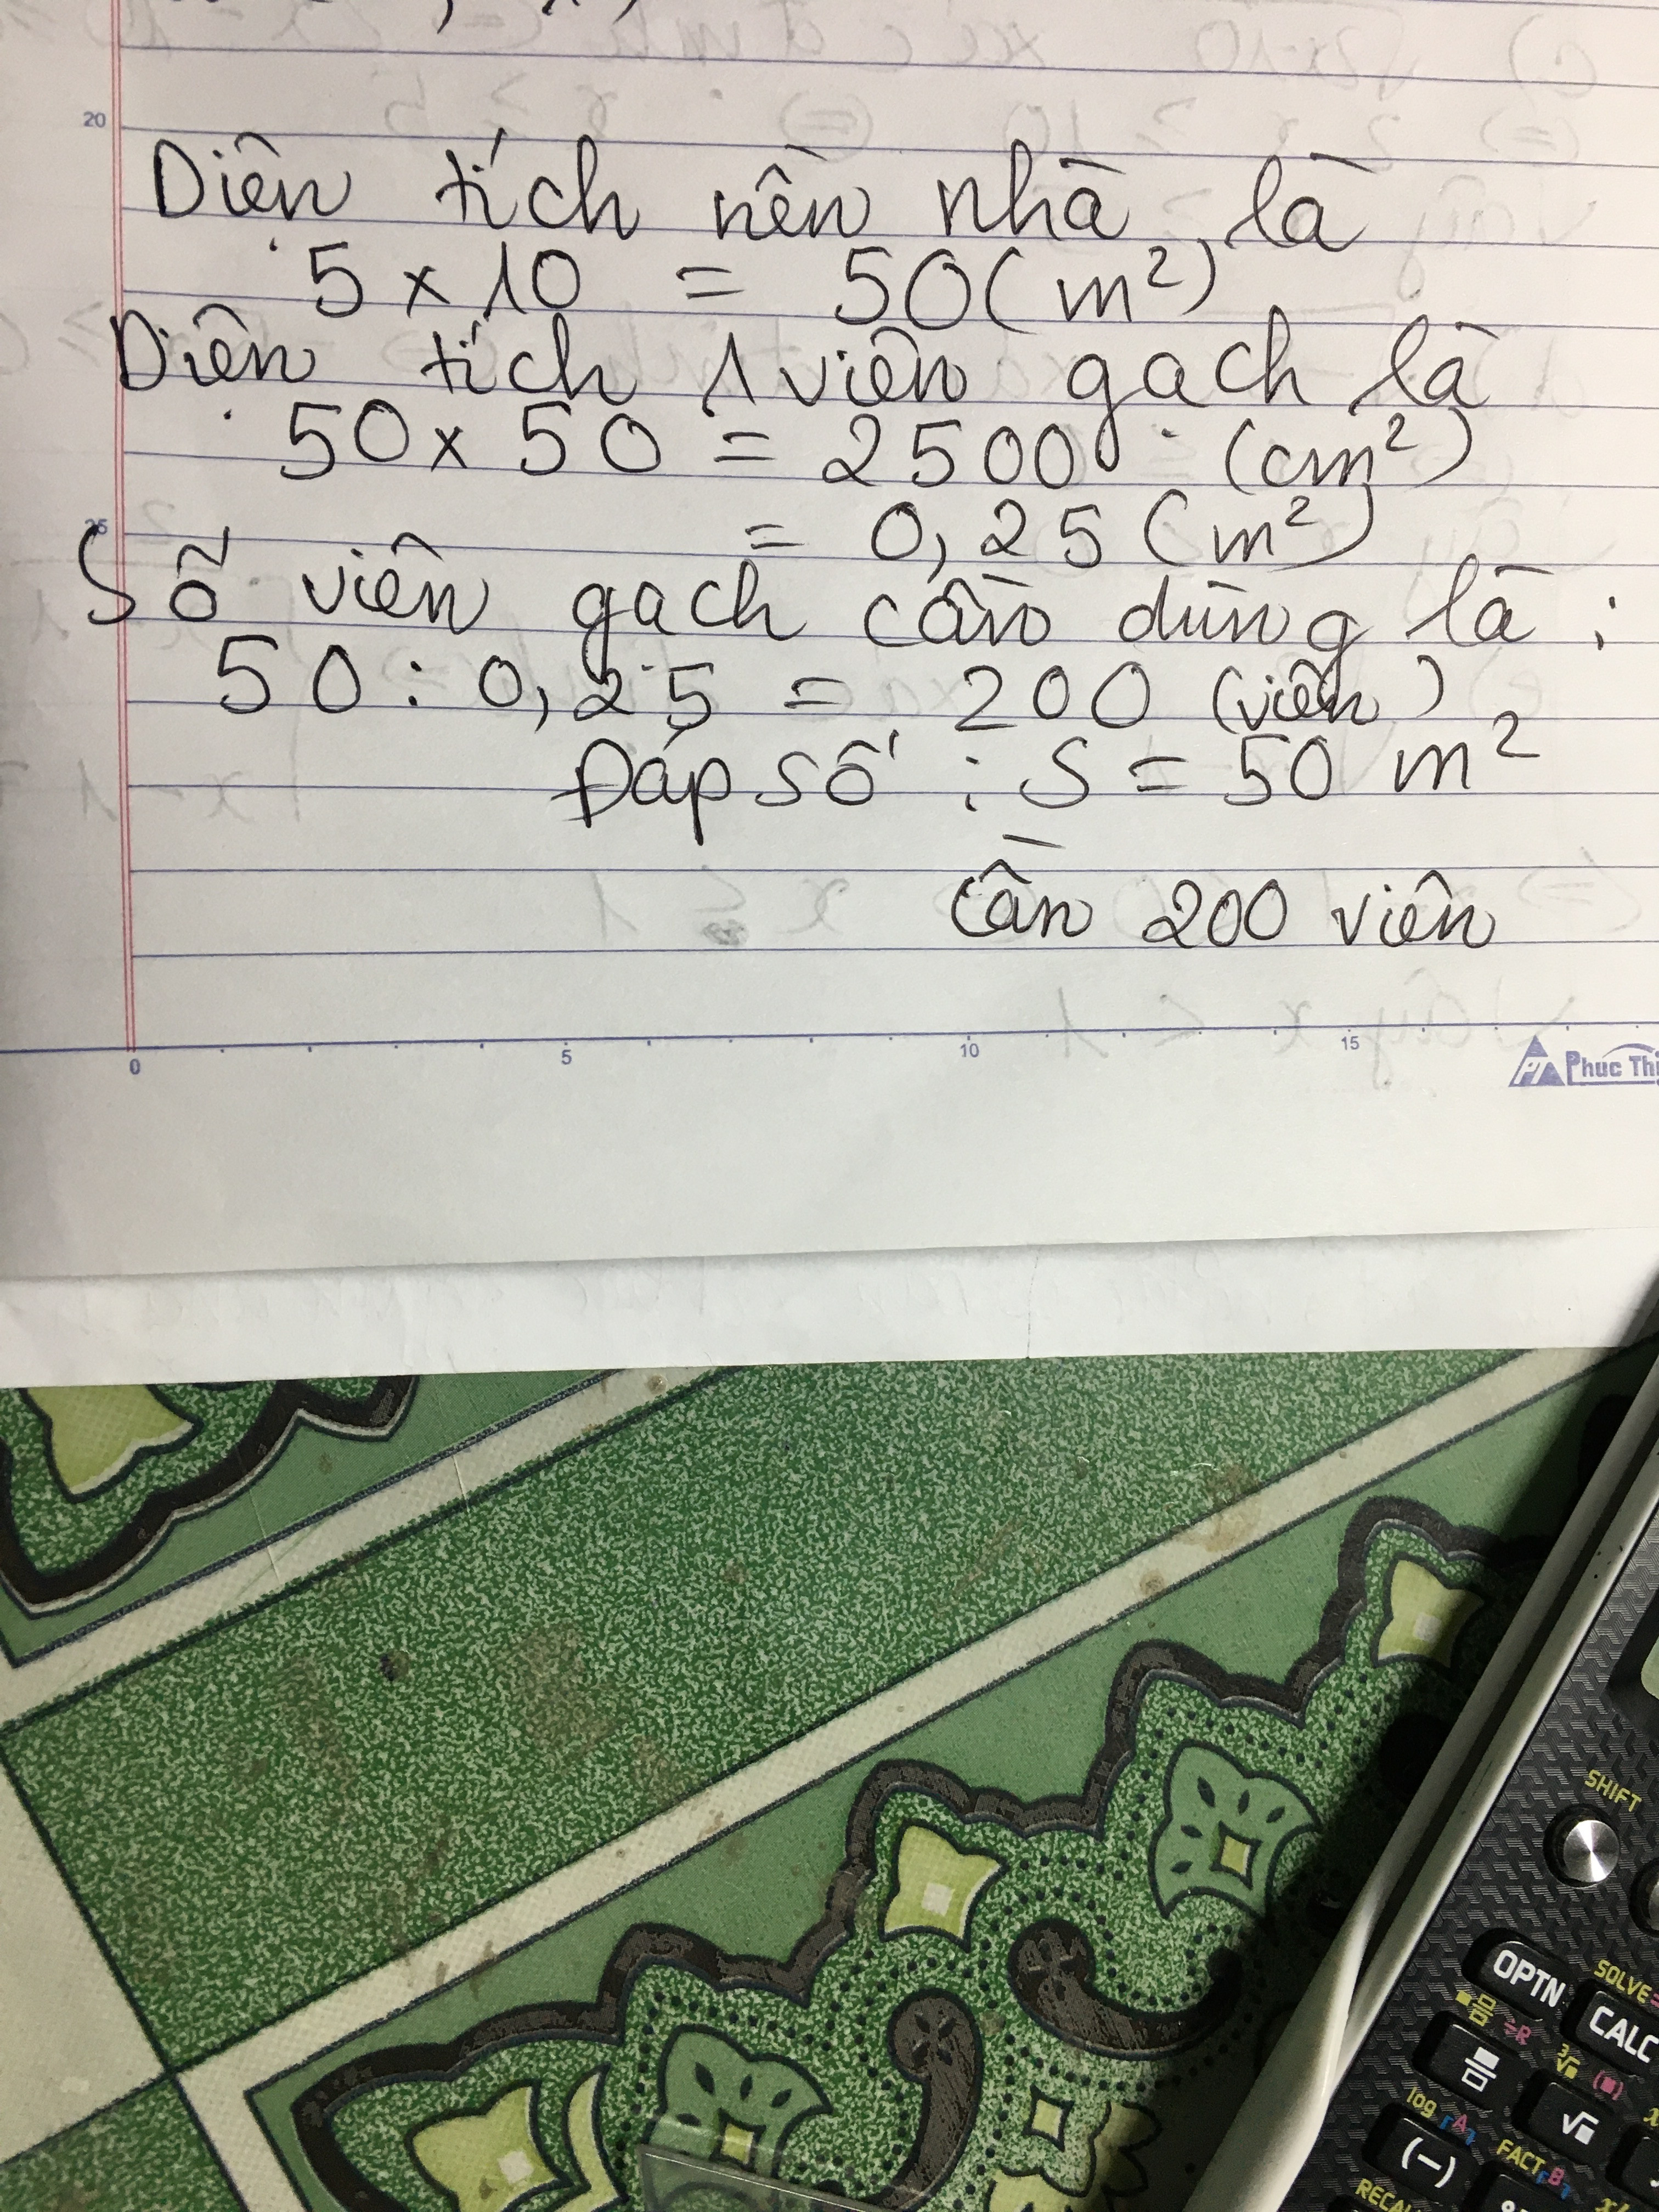 20
Diện tích nền nhà là
5 x 10 = 50 (m²)
Diện tích 1 viên gạch là
50 x 50 = 2500 (cm²)
= 0,25 (m²)
25
Số viên gạch cần dùng là :
50 : 0,25 = 200 (viên)
Đáp số : S = 50 m²
Cần 200 viên
0 5 10 15
Phuc Thi
SHIFT
OPTN
SOLVE=
CALC
÷R
log
(−)
FACT
B
RECAL